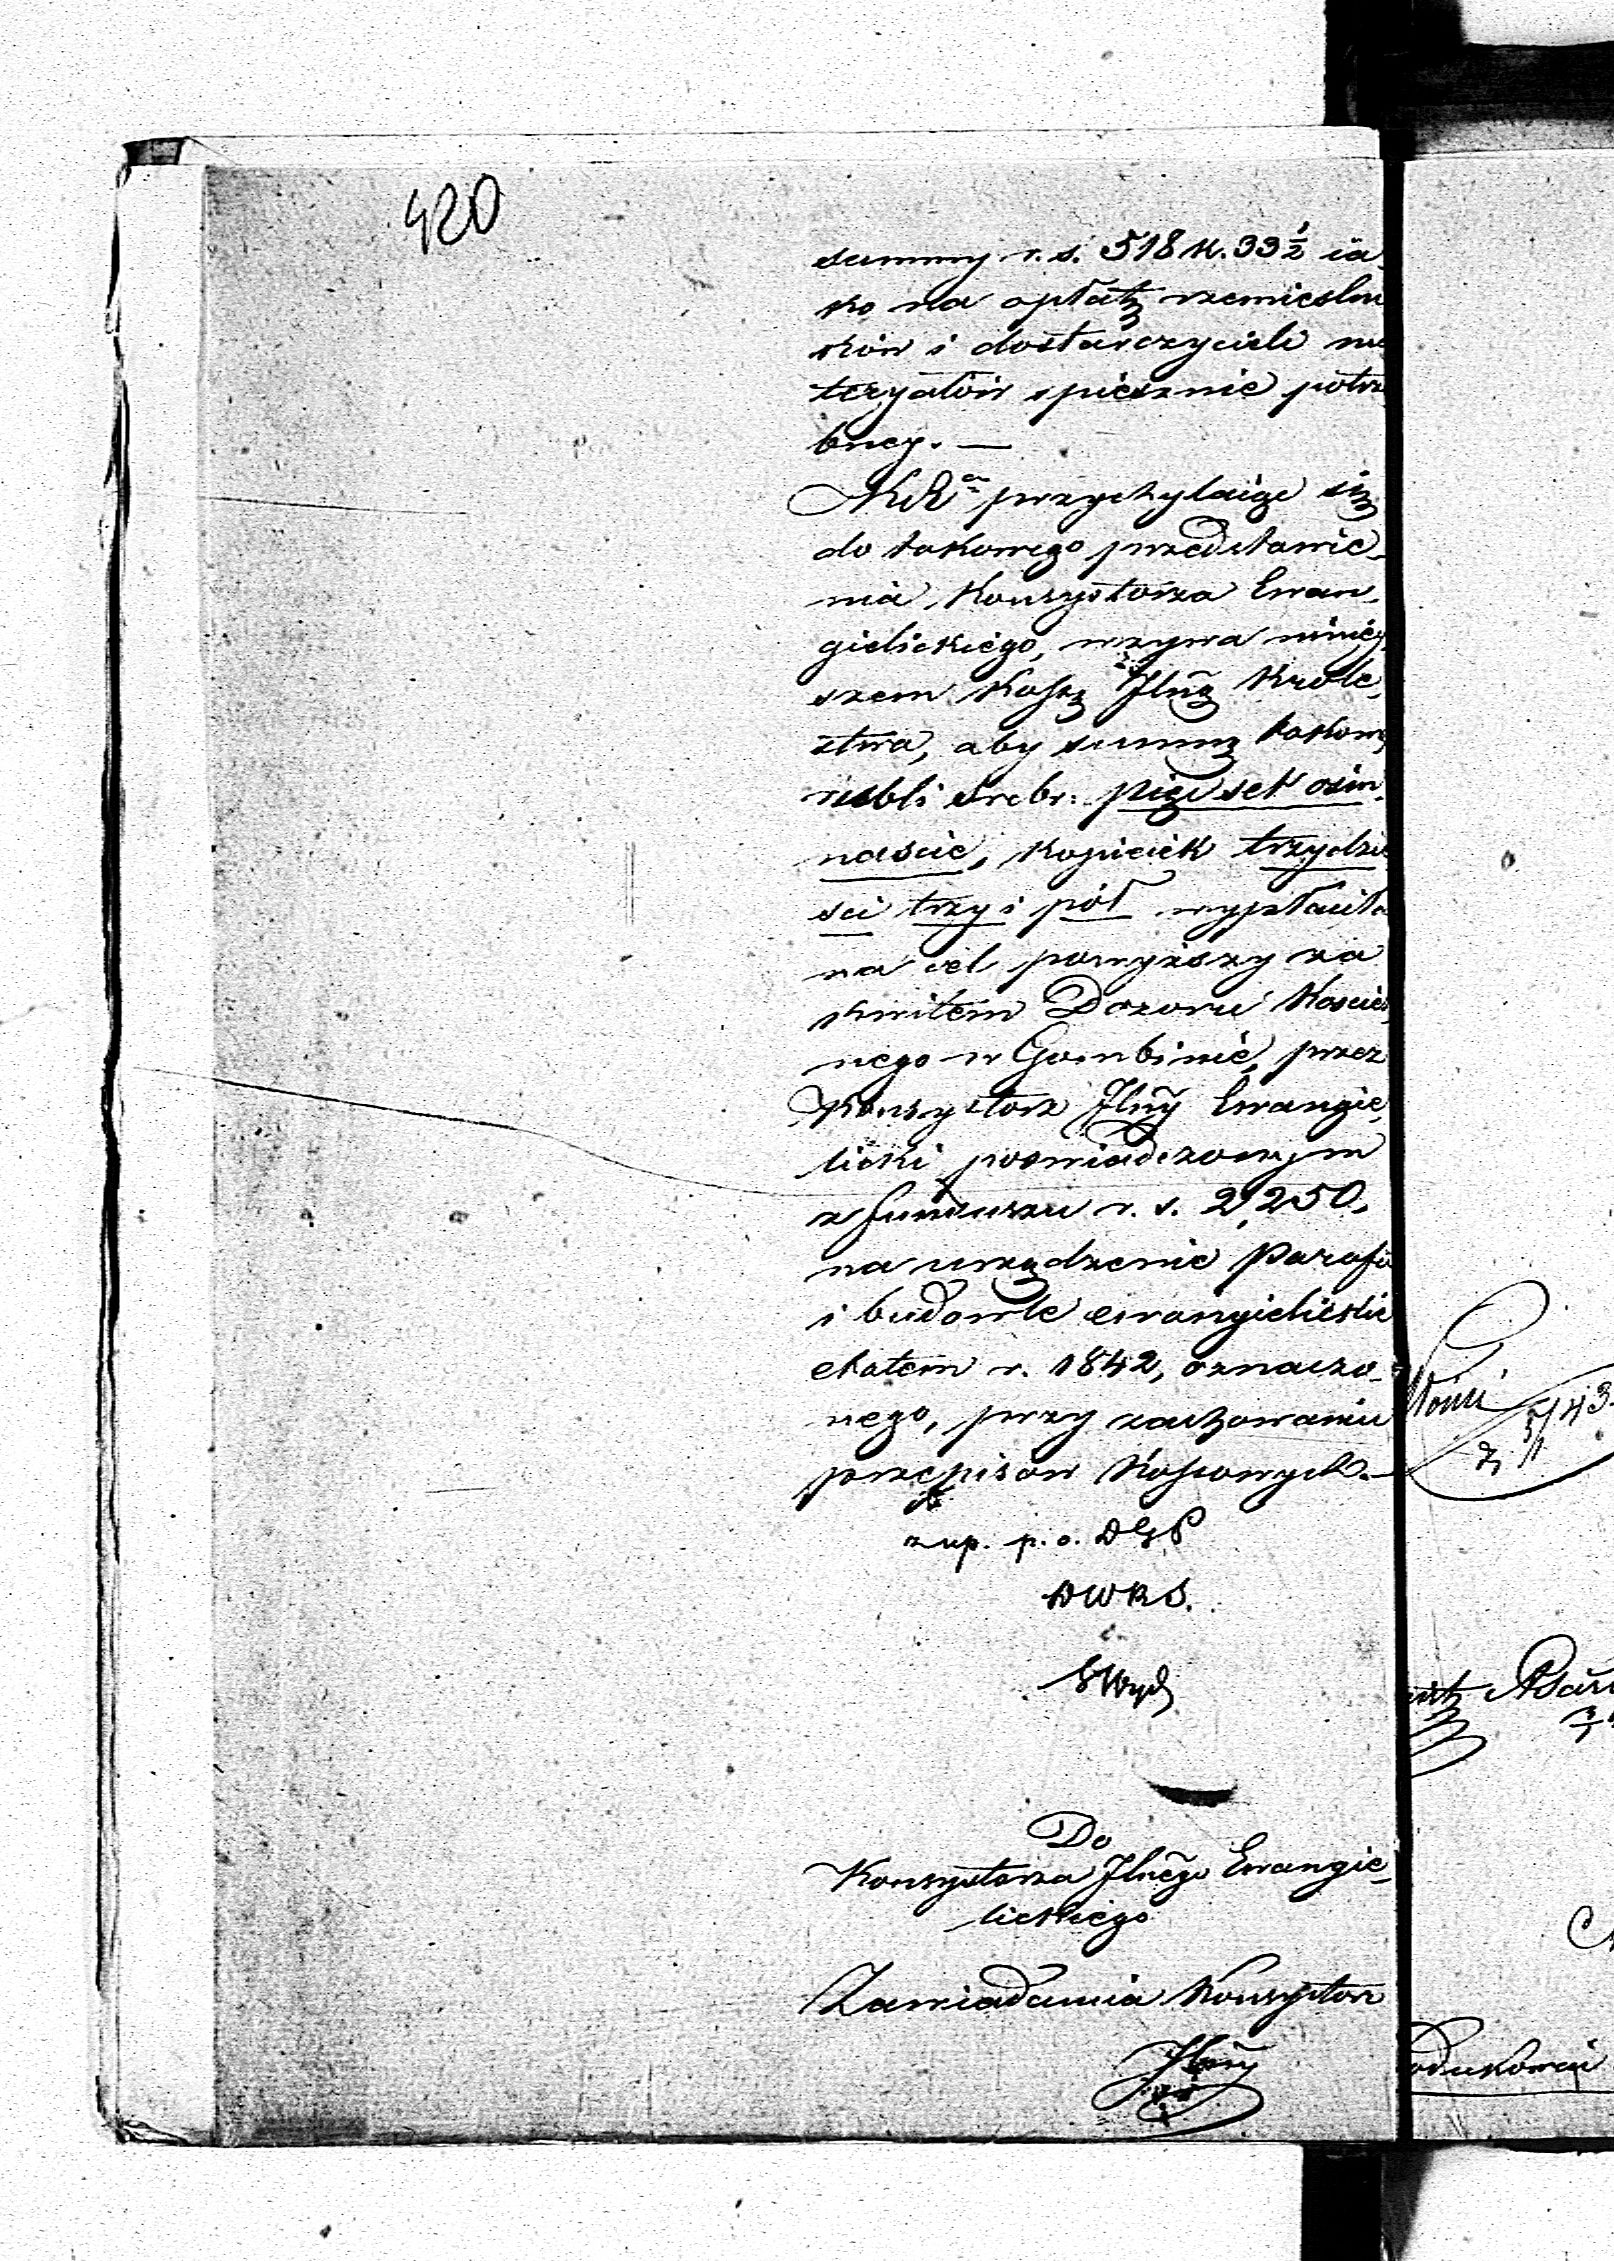 420
summy r. s. 518 k. 33 ½ ia
ko na opłatę rzemieslni
ków i dostarczycieli ma
teryałów spiesznie potrze
bney. —
przychylaiąc się
do takowego przedstawie-
nia Konsystorza Ewan-
gielickiego, wzywa niniey-
szem Kassę Jlną Krole-
stwa, aby summę takową
rubli srebr: pięćset osm-
naście, kopieiek trzydzie
ści trzy i pół wypłaciła
na cel powyższy za
kwitem Dozoru Kościel-
nego w Gombinie, przez
Konsystorz Jlny Ewangie-
licki poswiadczonym
z funduszu r. s. 2,250,
na urządzenie Parafii
i budowle ewangielickie
etatem r. 1842, oznaczo-
nego, przy zachowaniu
przepisów Kassowych.—
zup. p. o. DGP
DWRS.
SWyd
Do
Konsystorza Jlnego Ewangie-
lickiego
Zawiadamia Konsystorz
Jlny